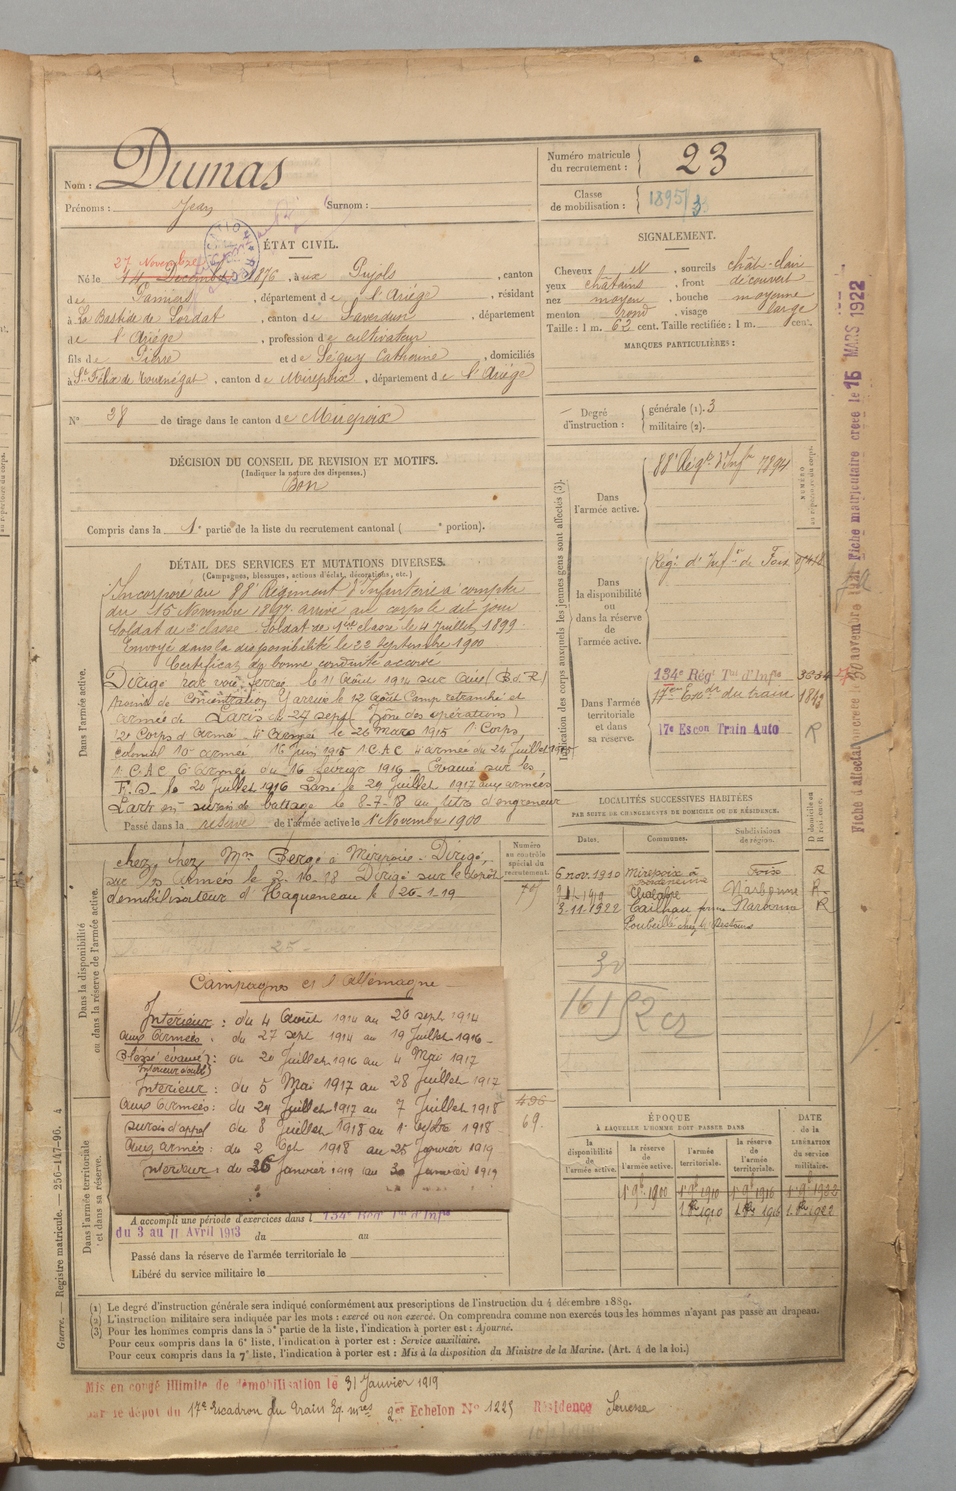 Nom : Dumas
Prénoms : Jean Surnom :
Numéro matricule du recrutement : 23
Classe de mobilisation : 1895/3
ÉTAT CIVIL.
27 Novembre
Né le 14 Décembre 1876, à aux Pujols, canton
de Pamiers, département de l'Ariège, résidant
à La Bastide de Lordat, canton de Saverdun, département
de l'Ariège, profession de cultivateur
fils de Pierre et de Séguy Catherine, domiciliés
à St Félix de Tournégat, canton de Mirepoix, département de l'Ariège
N° 38 de tirage dans le canton de Mirepoix
SIGNALEMENT.
Cheveux et, sourcils chât-clair
yeux châtains, front découvert
nez moyen, bouche moyenne
menton rond, visage large
Taille : 1 m. 62 cent. Taille rectifiée : 1 m. cent.
MARQUES PARTICULIÈRES :
Degré d'instruction : générale (1). 3
militaire (2).
DÉCISION DU CONSEIL DE REVISION ET MOTIFS.
(Indiquer la nature des dispenses.)
Bon
Compris dans la 1e partie de la liste du recrutement cantonal ( e portion).
DÉTAIL DES SERVICES ET MUTATIONS DIVERSES.
(Campagnes, blessures, actions d'éclat, décorations, etc.)
Dans l'armée active.
Incorporé au 88e Régiment d'Infanterie à compter
du 15 Novembre 1897. arrivé au corps le dit jour
Soldat de 2e classe. Soldat de 1ère classe le 4 Juillet 1899.
Envoyé dans la disponibilité le 22 Septembre 1900
Certificat de bonne conduite accordé
Dirigé par voie ferrée le 11 Août 1914 sur
point de concentration Y arrive le 12 Août Camp retranché et
armée de Paris du 27 sept (Zone des opérations)
2e Corps d'Armée 4e Armée le 26 Mars 1915 1er Corps
colonial 10e armée 16 juin 1915 1 C.A.C armée du 24 Juillet 1915
1 C.A.C 6e Armée du 16 février 1916 - Evacué sur les
le 20 juillet 1916 Passé le 29 Juillet 1917 aux armées
Parti en sursis de battage le 8-7-18 au titre d'engreneur
Passé dans la réserve de l'armée active le 1er Novembre 1900
Indication des corps auxquels les jeunes gens sont affectés (3).
Dans l'armée active. 88e Régt d'Infie 7894
Dans la disponibilité ou dans la réserve de l'armée active. Régt d'Infie de Foix
Dans l'armée territoriale et dans sa réserve. 134e Régt Tal d'Infie
17e Escon du train
17e Escon Train Auto R
Dans la disponibilité ou dans la réserve de l'armée active.
chez Mr Berge à Mirepoix - Dirigé
sur les armées le 2.10.18 Dirigé sur le dépôt
démobilisateur d'Haguenau le 26-1-19
Numéro au contrôle spécial du recrutement.
LOCALITÉS SUCCESSIVES HABITÉES
PAR SUITE DE CHANGEMENTS DE DOMICILE OU DE RÉSIDENCE.
Dates. Communes. Subdivisions de région.
6 nov. 1910 Mirepoix Foix R
Chalabre Narbonne R
3-11-1922 Cailhau Narbonne R
30
161
Campagnes c/ l'Allemagne
Intérieur : du 4 Août 1914 au 26 sept 1914
aux Armées : du 27 sept 1914 au 19 Juillet 1916
Blessé évacué : du 20 Juillet 1916 au 4 Mai 1917
Intérieur : du 5 Mai 1917 au 28 Juillet 1917
aux Armées : du 29 Juillet 1917 au 7 Juillet 1918
sursis d'appel du 8 Juillet 1918 au 1er octbre 1918
aux armées : du 2 Oct 1918 au 25 Janvier 1919
intérieur : du 26 Janvier 1919 au 30 Janvier 1919
496
69.
Dans l'armée territoriale et dans sa réserve.
A accompli une période d'exercices dans l 134e Régt Tal d'Infie
du 3 au 11 Avril 1913 du au
Passé dans la réserve de l'armée territoriale le
Libéré du service militaire le
ÉPOQUE
À LAQUELLE L'HOMME DOIT PASSER DANS
la disponibilité de l'armée active. la réserve de l'armée active. l'armée territoriale. la réserve de l'armée territoriale.
DATE de la LIBÉRATION du service militaire.
1er 9bre 1900 1er 9bre 1910 1er 9bre 1916 1er 9bre 1922
(1) Le degré d'instruction générale sera indiqué conformément aux prescriptions de l'instruction du 4 décembre 1889.
(2) L'instruction militaire sera indiquée par les mots : exercé ou non exercé. On comprendra comme non exercés tous les hommes n'ayant pas passé au drapeau.
(3) Pour les hommes compris dans la 5e partie de la liste, l'indication à porter est : Ajourné.
Pour ceux compris dans la 6e liste, l'indication à porter est : Service auxiliaire.
Pour ceux compris dans la 7e liste, l'indication à porter est : Mis à la disposition du Ministre de la Marine. (Art. 4 de la loi.)
Guerre. — Registre matricule. — 256-147-96. 4
Mis en congé illimité de démobilisation le 31 Janvier 1919
par le dépôt du 17e Escadron du Train Eq. mres 2er Echelon N° 1225 Résidence
Fiche matriculaire créée le 15 MARS 1922